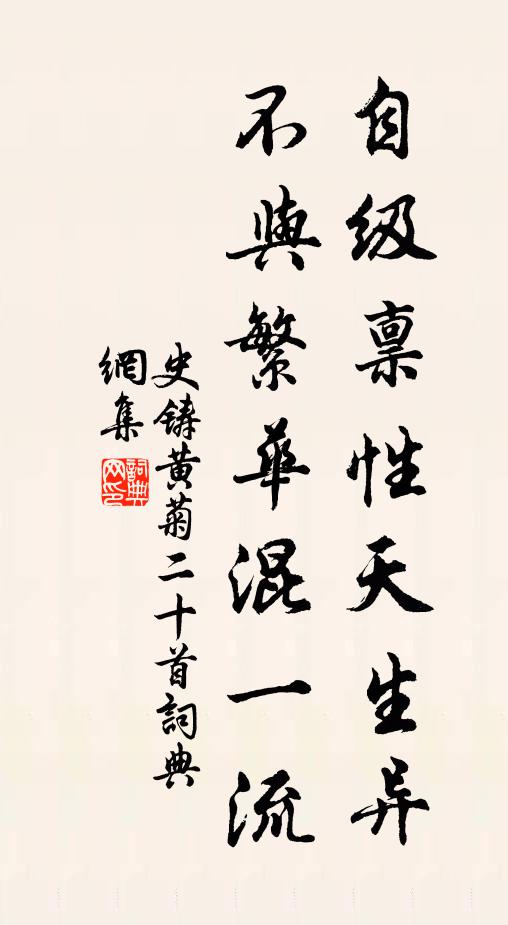 自级禀性天生异
不與繁华混一流
史铸黄菊二十首詞典
網集
詞典網印